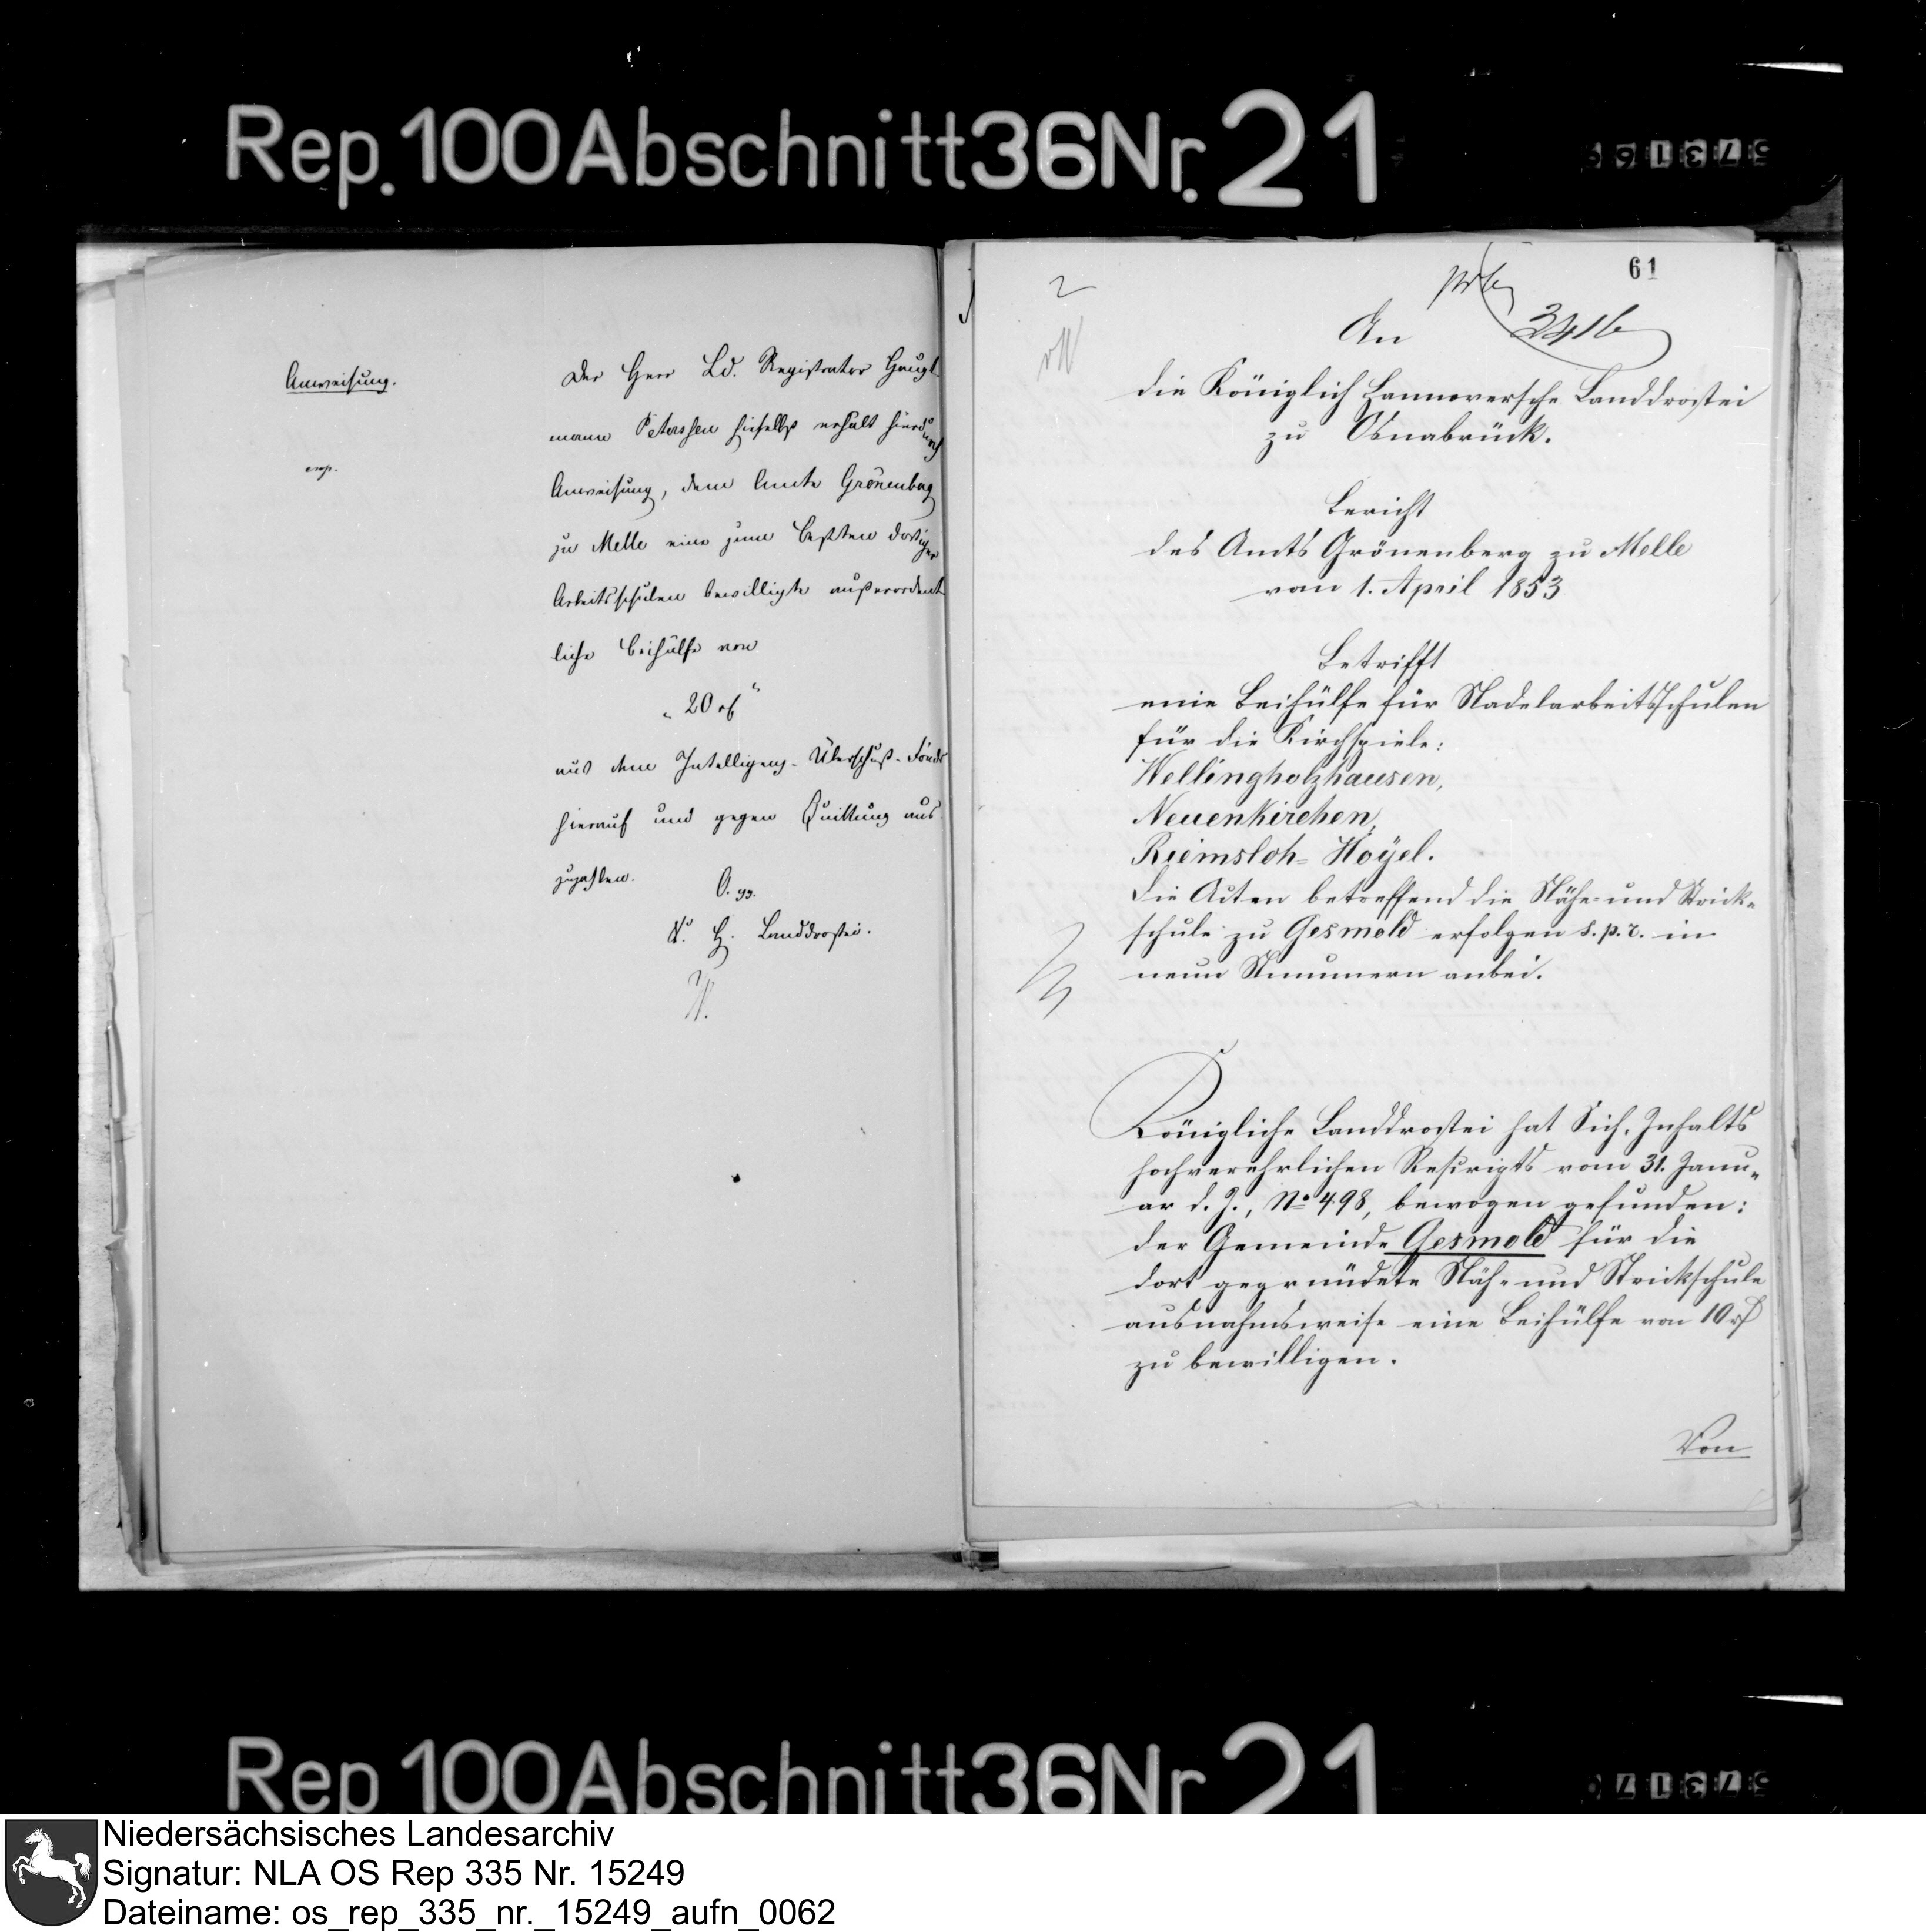 Rep. 100 Abschnitt 36 Nr. 21
Anweisung.
exp.
Der Herr Ld. Registrator Haupt
mann Peterssen hieselbst erhält hierdurch
Anweisung, dem Amte Grönenberg
zu Melle eine zum Besten dortiger
Arbeitsschulen bewilligte außerordent
liche Beihülfe von
„20 rf“
aus dem Intelligenz-Überschuß-Fonds
hierauf und gegen Quittung aus
zuzahlen.
O. 
K. H. Landdrostei.
61
3416
An
die Königlich Hannoversche Landdrostei
zu Osnabrück.
Bericht
des Amts Grönenberg zu Melle
vom 1. April 1853
Betrifft
eine Beihülfe für Nadelarbeitsschulen
für die Kirchspiele:
Wellingholzhausen,
Neuenkirchen,
Riemsloh-Hoÿel.
Die Acten betreffend die Nähe- und Strick-
schule zu Gesmold erfolgen s. p. r. in
neun Nummern anbei.
Königliche Landdrostei hat Sich, Inhalts
hochverehrlichen Rescripts vom 31. Janu-
ar d. J., No 498, bewogen gefunden:
der Gemeinde Gesmold für die
dort gegründete Näh- und Strickschule
ausnahmsweise eine Beihülfe von 10 rf
zu bewilligen.
Von
Rep 100 Abschnitt 36 Nr 21
Niedersächsisches Landesarchiv
Signatur: NLA OS Rep 335 Nr. 15249
Dateiname: os_rep_335_nr._15249_aufn_0062